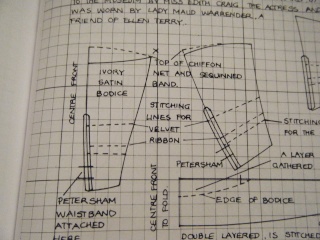 TO THE MUSEUM BY MISS EDITH CRAIG, THE ACTRESS, AND
WAS WORN BY LADY MAUD WARRENDER, A
FRIEND OF ELLEN TERRY.
CENTRE FRONT
IVORY
SATIN
BODICE
TOP OF CHIFFON
NET AND SEQUINNED
BAND.
STITCHING
LINES FOR
VELVET
RIBBON
PETERSHAM
STITCHING
FOR THE
A LAYER
GATHERED
PETERSHAM
WAISTBAND
ATTACHED
HERE
CENTRE FRONT
TO FOLD
EDGE OF BODICE
DOUBLE LAYERED, IS STITCHED